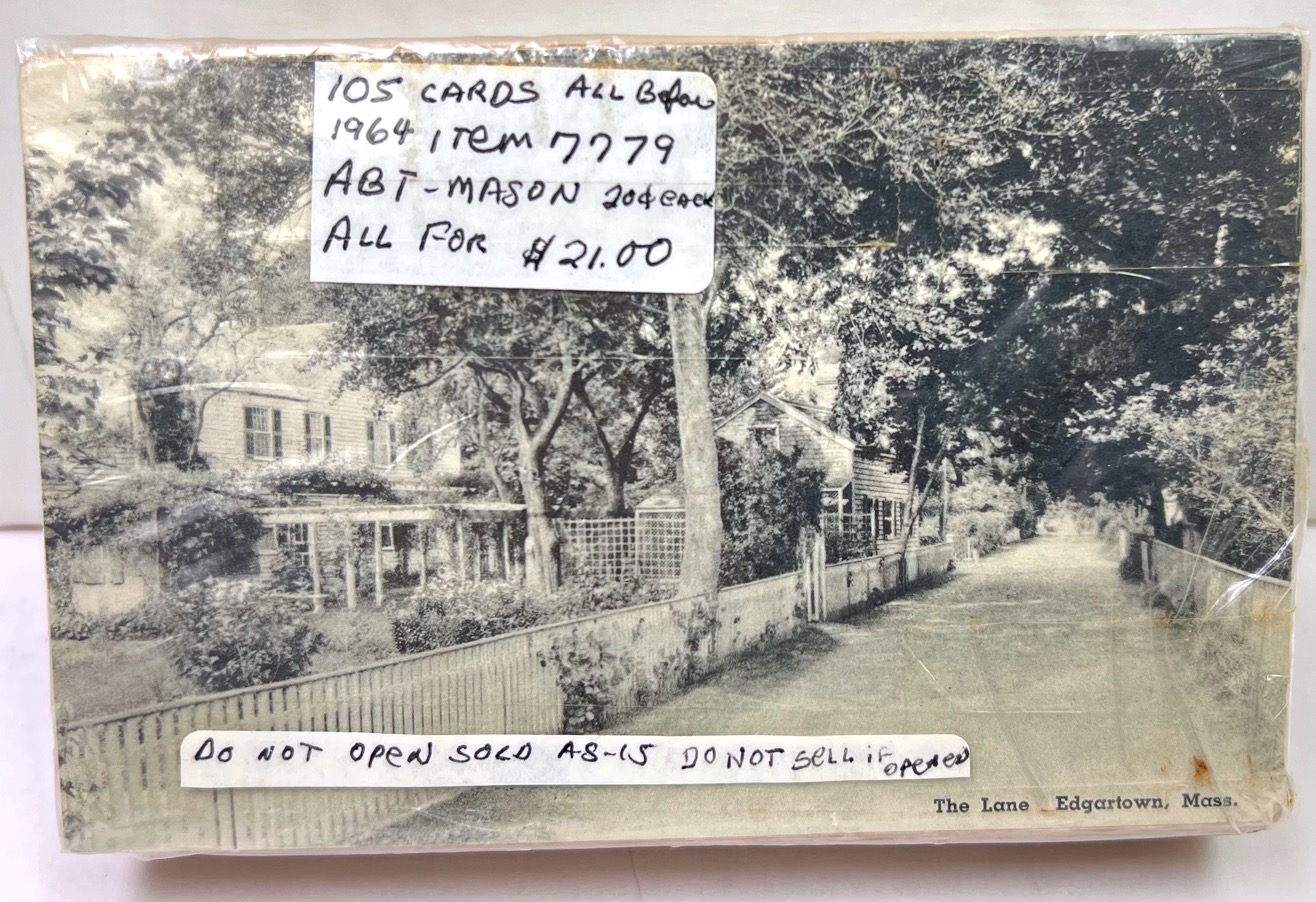 105 CARDS ALL Before
1964 ITem 7779
ABT - MASON 20¢ each
ALL FOR $21.00
DO NOT OPEN SOLD AS-IS DO NOT SELL iF OPENED
The Lane Edgartown, Mass.